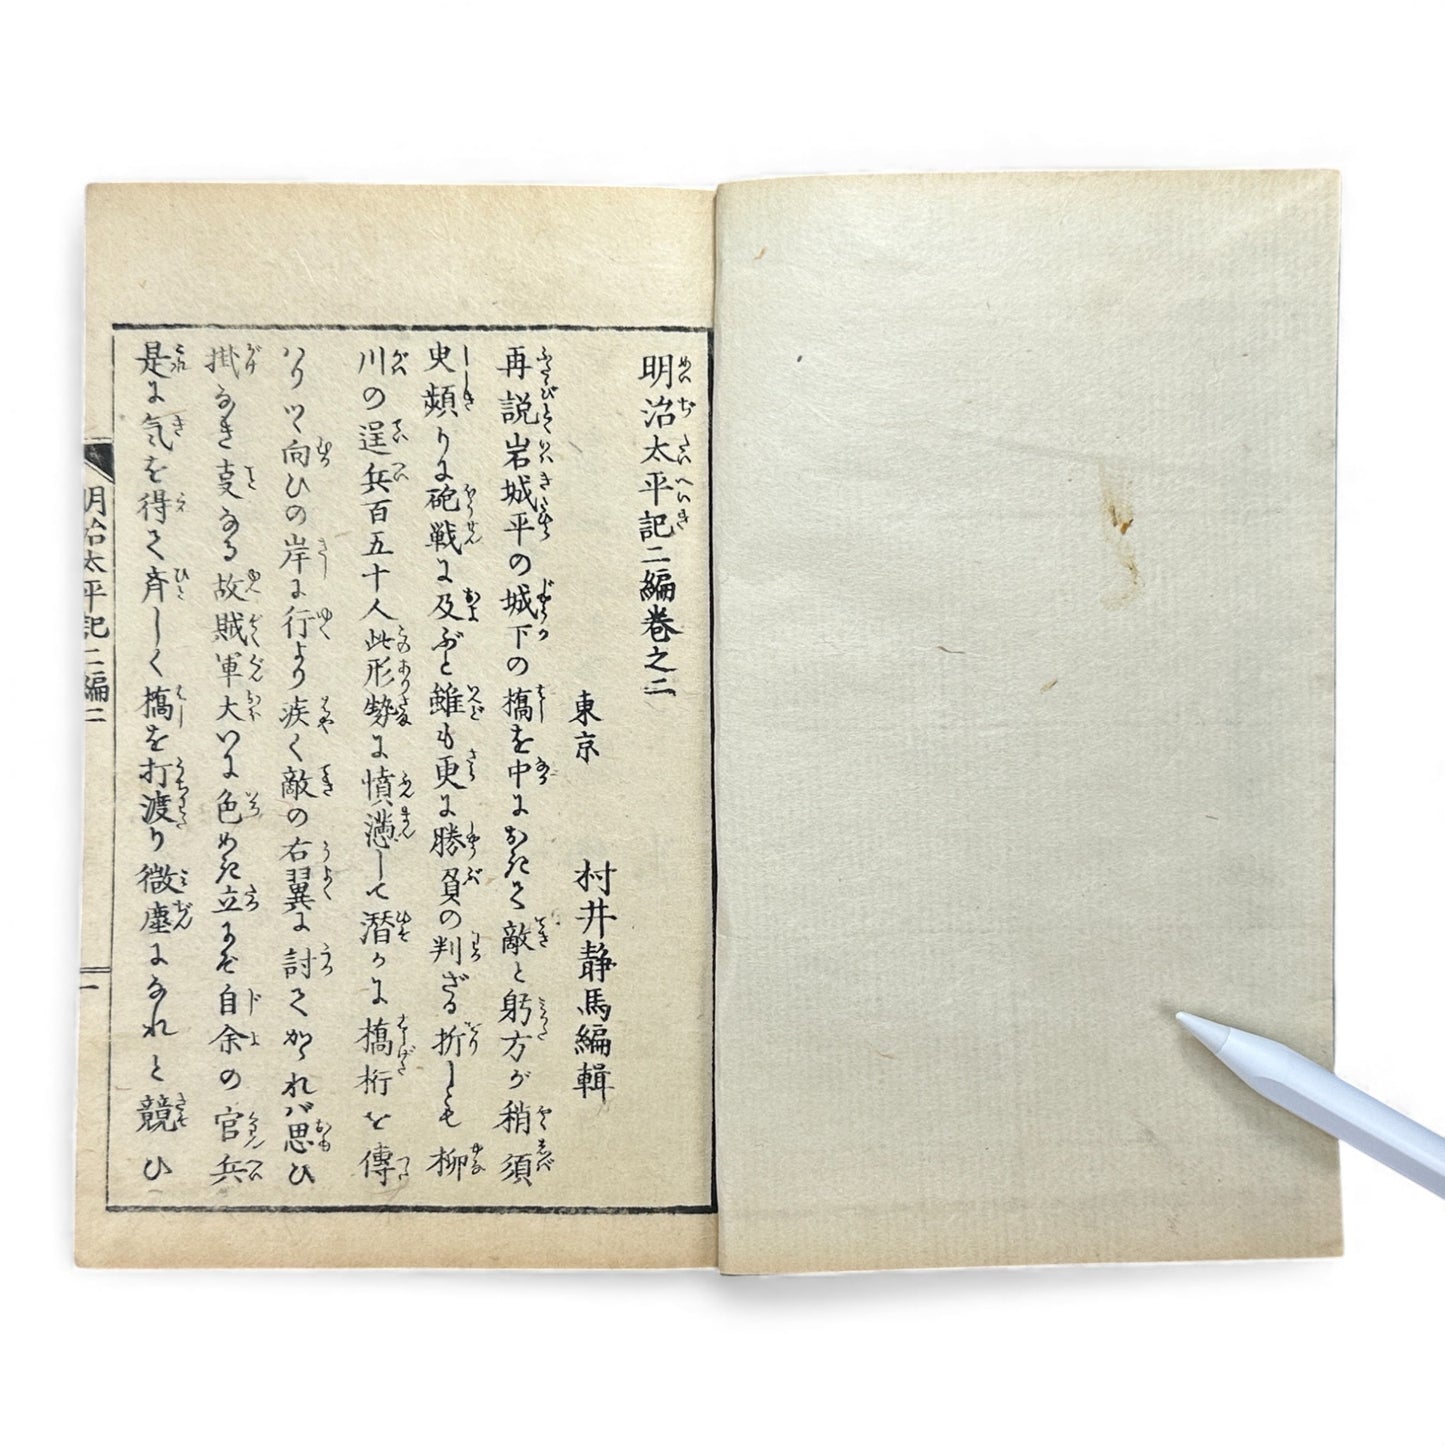 明治太平記二編巻之二
東京 村井静馬編輯
再説岩城平の城下の橋を中におきて敵と躬方が稍須
臾頻りに砲戦に及ぶと雖も更に勝負の判ざる折しも柳
川の逞兵百五十人此形勢に憤懣して潜かに橋桁を傳
はりつゝ向ひの岸に行より疾く敵の右翼に討てかゝれバ思ひ
掛なき支なる故賊軍大いに色めき立にぞ自余の官兵
是に気を得て斉しく橋を打渡り微塵になれと競ひ
明治太平記二編二
一